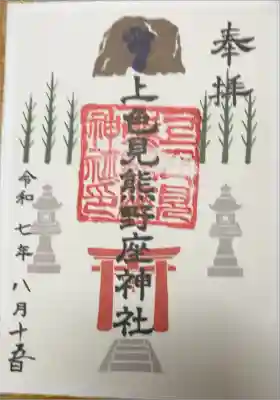 奉拝
上色見熊野座神社
令和七年 八月十五日